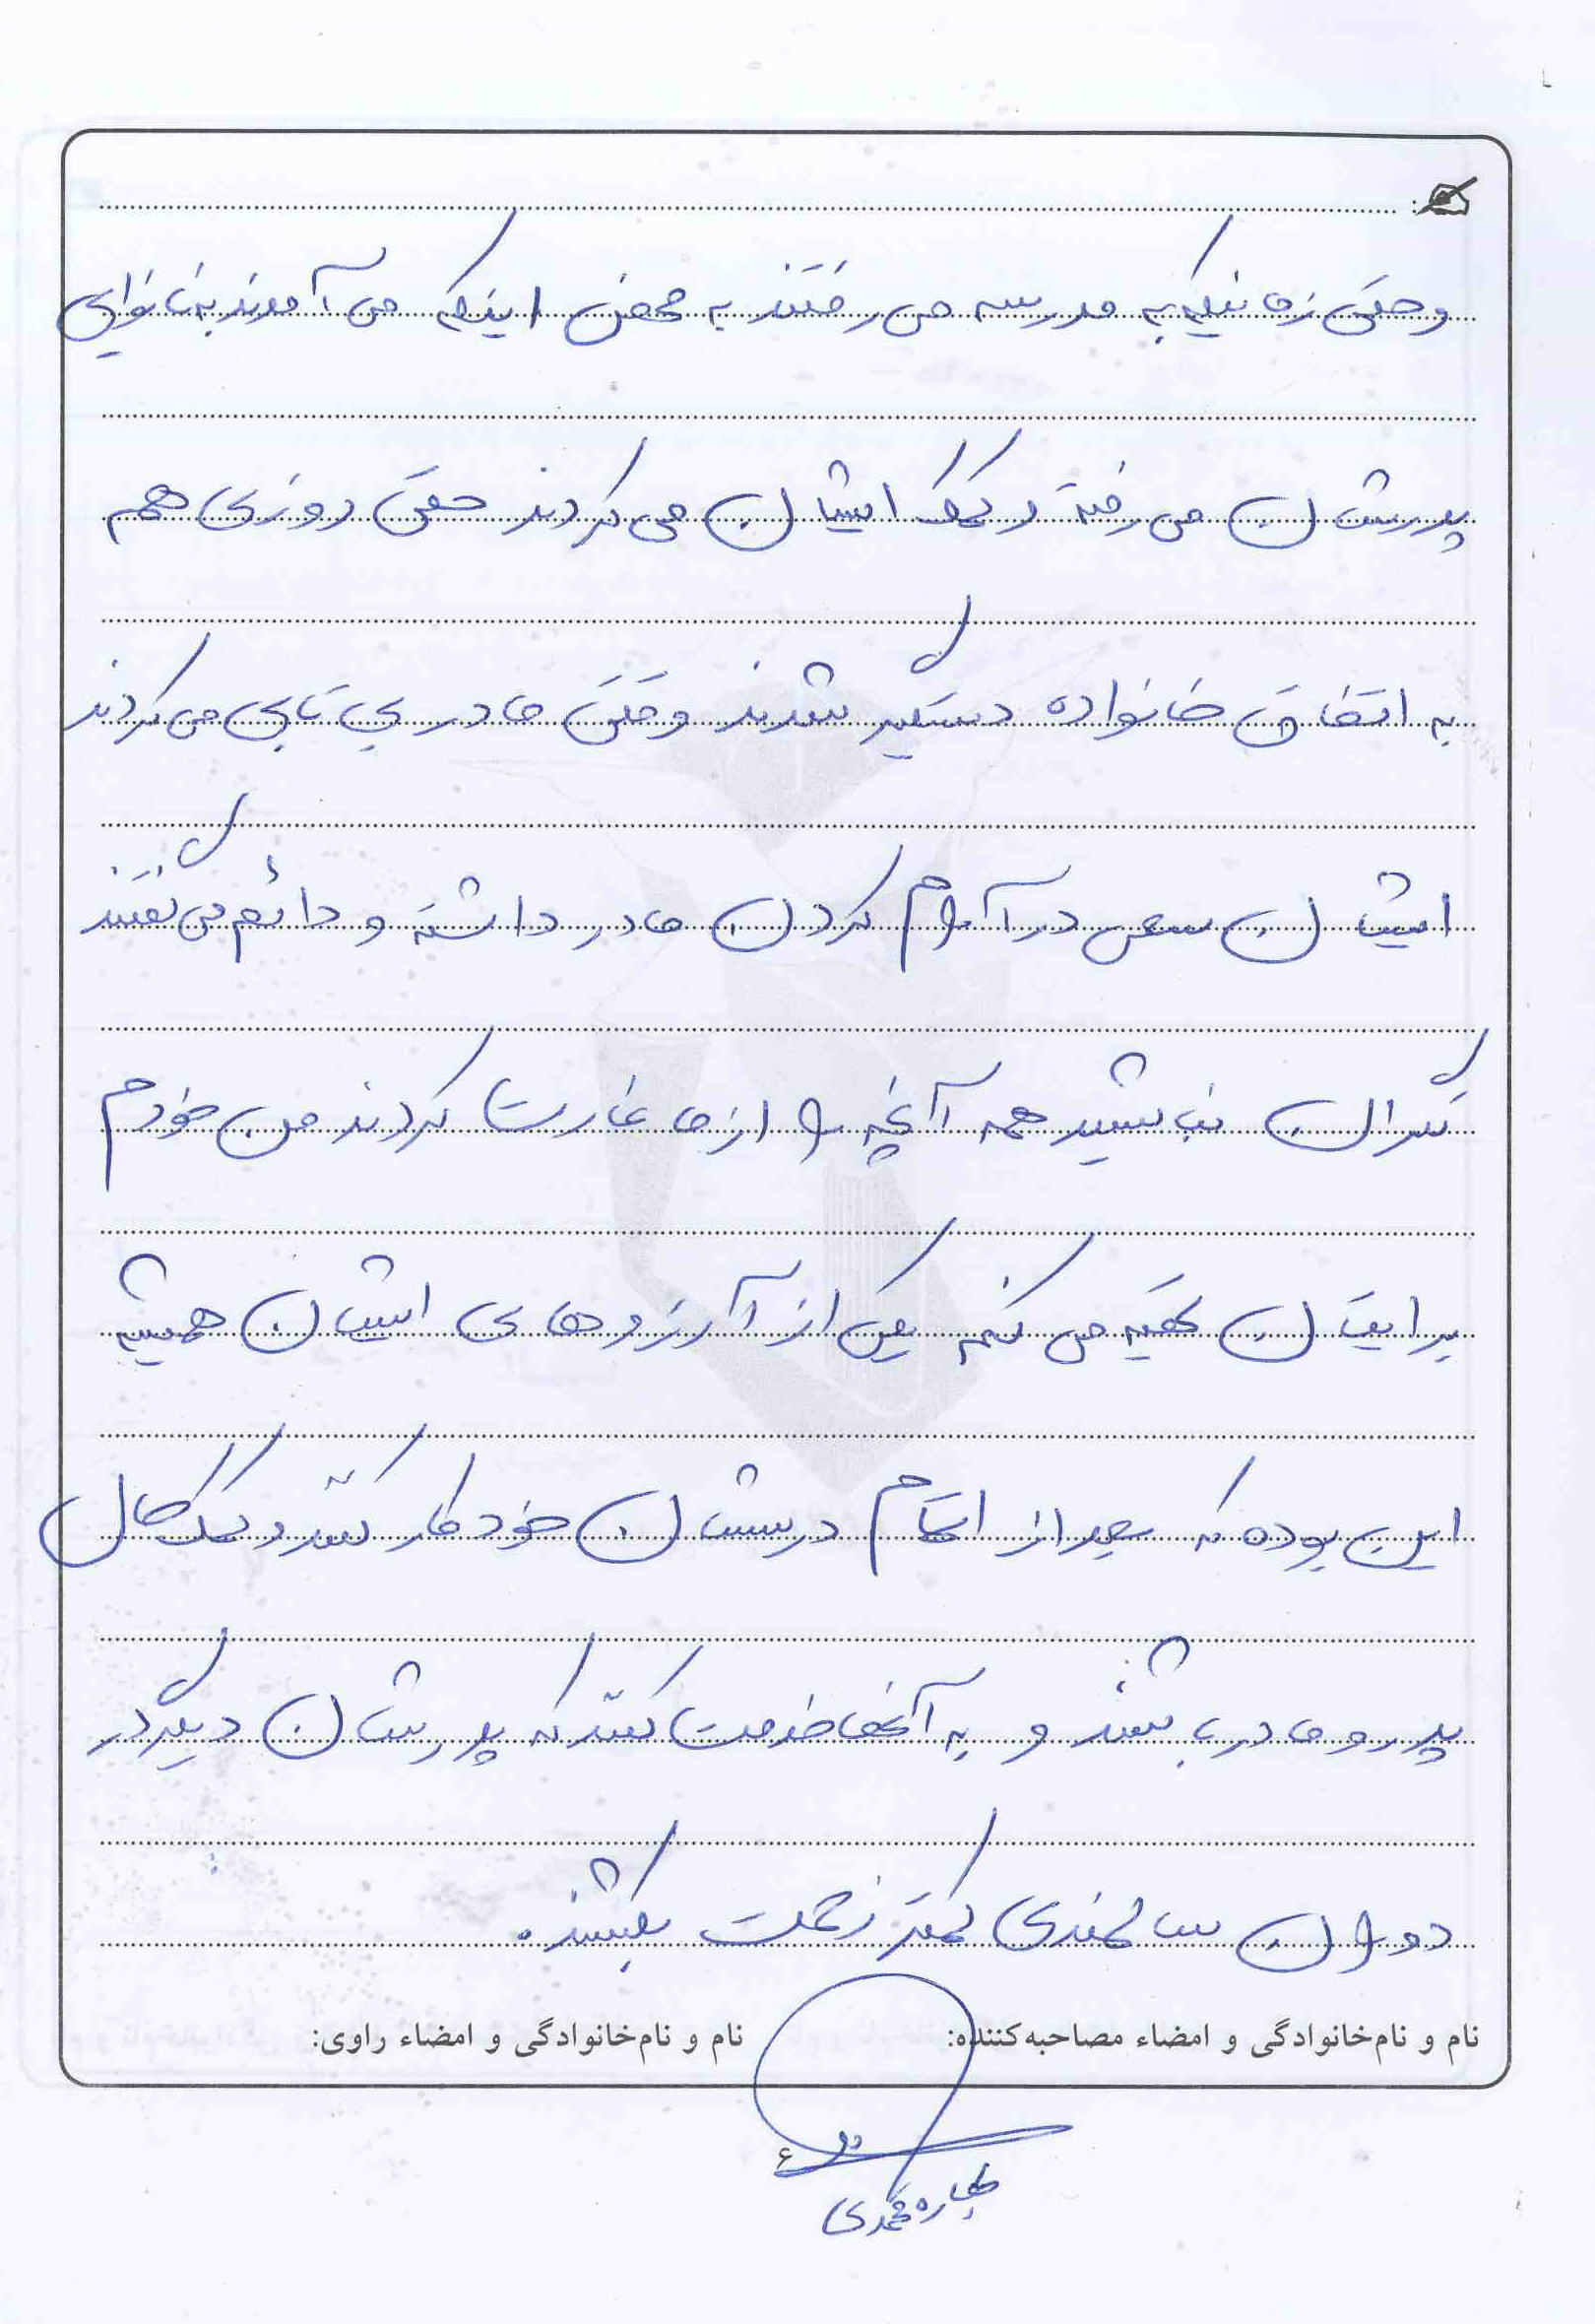 وحتی زمانیکه به مدرسه می رفتند به محض اینکه می آمدند به نانوایی
پدرشان می رفته و کمک ایشان می کردند حتی روزی هم
به اتفاق خانواده دستگیر شدند وقتی مادر بی تابی می کردند
ایشان سعی در آرام کردن مادر داشته و دائم می گفتند
نگران نباشید همه آنچه را از ما غارت کردند من خودم
برایتان تهیه می کنم یکی از آرزوهای ایشان همیشه
این بوده که بعد از اتمام درسشان خود کار کنند و کمک حال
پدر و مادر باشند و به آنها خدمت کنند که پدرشان دیگر در
دوران سالمندی کمتر زحمت بکشند.
نام و نام‌خانوادگی و امضاء مصاحبه‌کننده:
نام و نام‌خانوادگی و امضاء راوی:
۶
محمدی